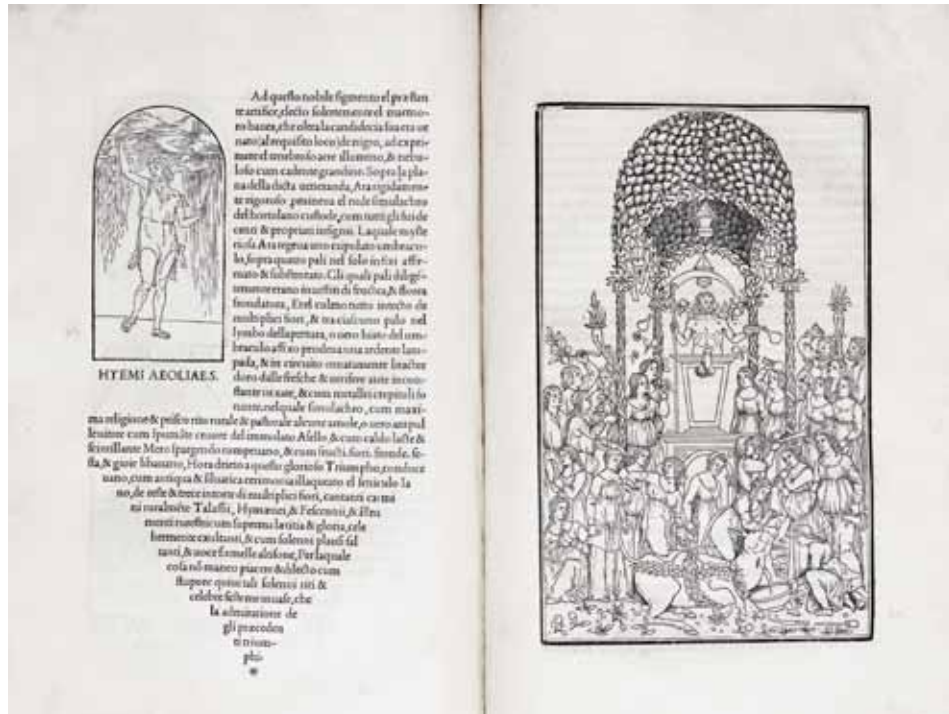 Ad questo nobile figmento el præstan
te artifice, electo solertemente el marmo-
ro havea, che oltra la candidecia sua era ve
nato (al requisito loco) de nigro, ad expri-
mere el tenebroso aere illumino, & nebu-
loso cum cadente grandine. Sopra la pla-
na della dicta veneranda, Ara rigidamen-
te rigoroso promineva el rude simulachro
del hortulano custode, cum tutti gli sui de
centi & propriati insignii. Laquale myste
riosa Ara tegeva uno cupulato umbracu-
lo, sopra quatro pali nel solo infixi affir-
mato & substentato. Gli quali pali dilige-
temente erano investiti di fructea, & florea
frondatura, Et el culmo tutto intecto de
multiplici fiori, & tra ciascuno palo nel
lymbo dellapertura, o vero hiato del um-
braculo affixo pendeva una ardente lam-
pada, & in circuito ornatamente bractee
doro dalle fresche & verifere aure incon-
stante vexate, & cum metallei crepituli so
nante, nelquale simulachro, cum maxi-
HYEMI AEOLIAE S.
ma religione & prisco rito rurale & pastorale alcune amole, o vero ampul
le vitree cum spumate cruore del immolato Asello, & cum caldo lacte &
scintillante Mero spargendo rumpevano, & cum fructi, fiori, fronde, fe-
sta, & gioie libavano, Hora drieto a questo glorioso Triumpho, conduce
vano, cum antiqua & silvatica cerimonia illaqueato el seniculo Ia
no, de reste & trece intorte di multiplici fiori, cantanti carmi
ni ruralmente Talassii, Hymænei, & Fescennii, &
cum suprema lætitia & gloria, cele
bremente exultanti, & cum solenni plausi sal
tanti, & voce femelle altisone, Per laquale
cosa nō maneo piacere & delecto cum
stupore quivi tali solenni riti &
celebre feste me invase, che
la admiratione de
gli præceden
ti trium-
phi.
*